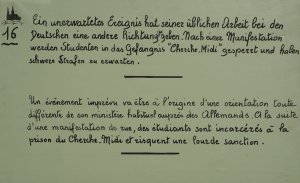 16
Ein unerwartetes Ereignis hat seiner üblichen Arbeit bei den
Deutschen eine andere Richtung geben. Nach einer Manifestation
werden Studenten in das Gefängnis "Cherche-Midi" gesperrt und haben
schwere Strafen zu erwarten.
Un événement imprévu va être à l'origine d'une orientation toute
différente de son ministère habituel auprès des Allemands. A la suite
d'une manifestation de rue, des étudiants sont incarcérés à la
prison du Cherche-Midi et risquent une lourde sanction.